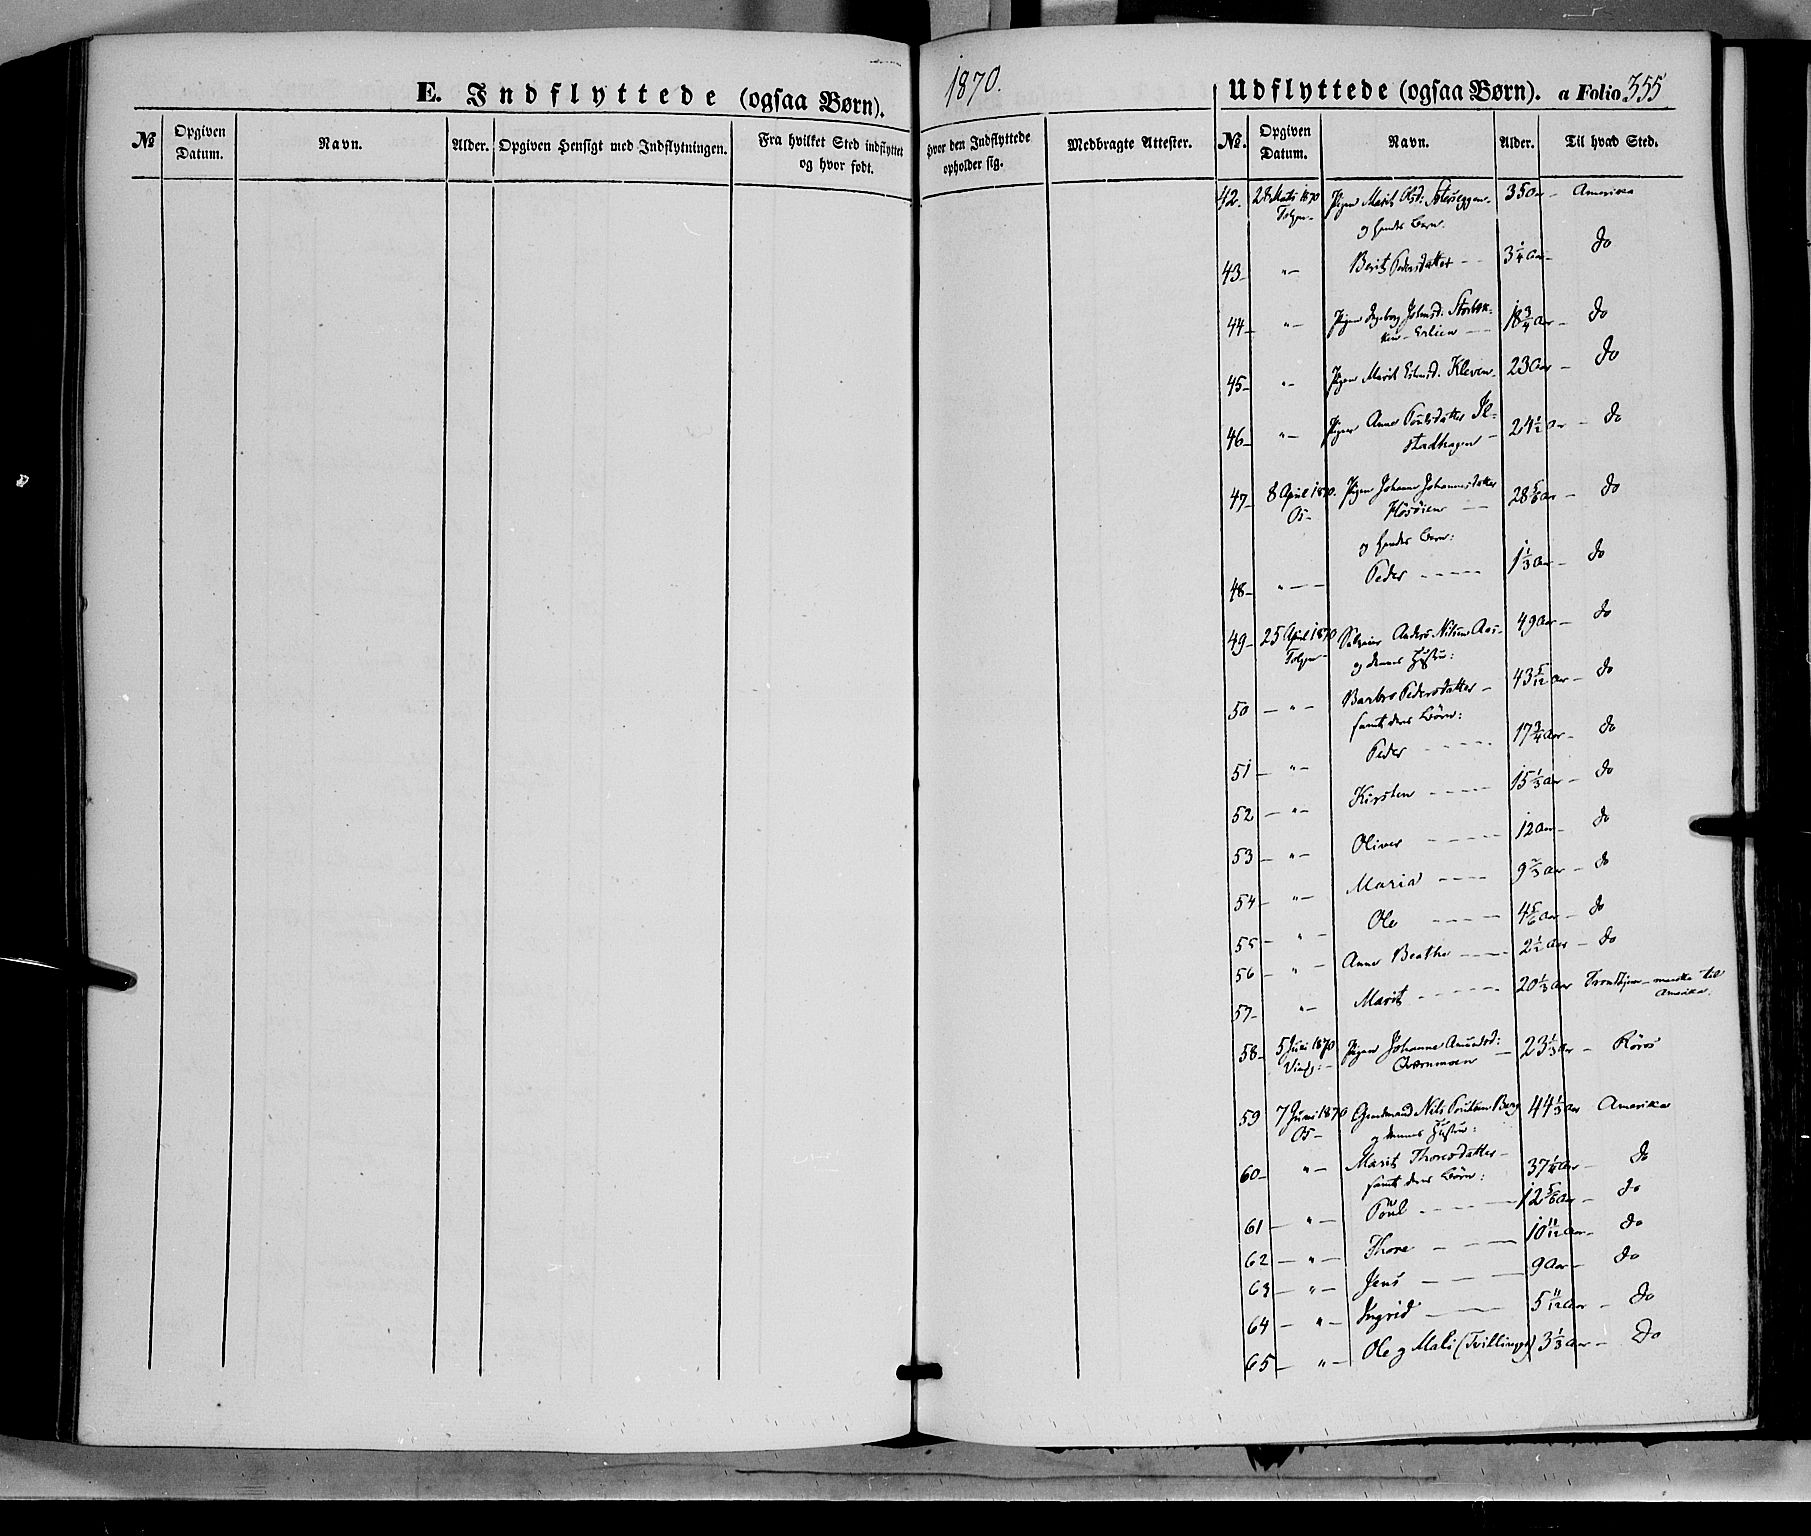 1870.
E. Indflyttede (ogsaa Børn).
№ Opgiven Datum. Navn. Alder. Opgiven Hensigt med Indflytningen. Fra hvilket Sted indflyttet og hvor født. Hvor den Indflyttede opholder sig. Medbragte Attester.
Udflyttede (ogsaa Børn). a Folio 355
№. Opgiven Datum. Navn. Alder. Til hvad Sted.
42. 28 Marts 1870 Pigen Marit Olsd: 35 Aar - Amerika
Tolgen - og hendes Barn.
43 - " - Berit Pedersdatter - - 3 1/4 Aar - do
44 - " - Pigen Ingeborg Johnsd: 18 3/4 Aar - do
Erlien - -
45 - " - Pigen Marit Estensd. Kleven - 23 Aar - do
46 - " - Pigen Anne Poulsdatter 24 1/2 Aar - do
47 - 8 April 1870. Pigen Johanne Johannesdatter 28 5/6 Aar - do
Os -
og hendes Barn:
48 - " - - Peder - - - - 1 1/3 Aar - do
49 - 25 April 1870 Anders Nilsen Aas - 49 Aar - do
Tolgen - og dennes Hustru:
50 - " - Barbro Pedersdatter - 43 5/12 Aar - do
samt deres Børn:
51 - " - Peder - - - - 17 3/4 Aar - do
52 - " - Kirsten - - - - 15 1/3 Aar - do
53 - " - Oliver - - - - 12 Aar - do
54 - " - Maria - - - - 9 2/3 Aar - do
55 - " - Ole - - - - 4 5/6 Aar - do
56 - " - Anne Beathe - - - 2 1/2 Aar - do
57 - " - Marit - - - - 20 1/3 Aar Trondhjem - maaske til
Amerika.
58 - 5 Juni 1870 Pigen Johanne Amundsd: 23 1/3 Aar - Röros
Ving: - Qvernmoen -
59 7 Juni 1870 Gaardmand Nils Poulsen Berg 44 1/3 Aar Amerika
Os - og dennes Hustru:
60 - " - Marit Thoresdatter - 37 1/4 Aar - do
samt deres Børn:
61 - " - Poul - - - - 12 5/6 Aar - do
62 - " - Thore - - - - 10 11/12 Aar - do
63 - " - Jens - - - - 9 Aar - do
64 - " - Ingrid - - - - 5 11/12 Aar - do
65 - " - Ole og Mali (Tvillinger) 3 1/3 Aar - do